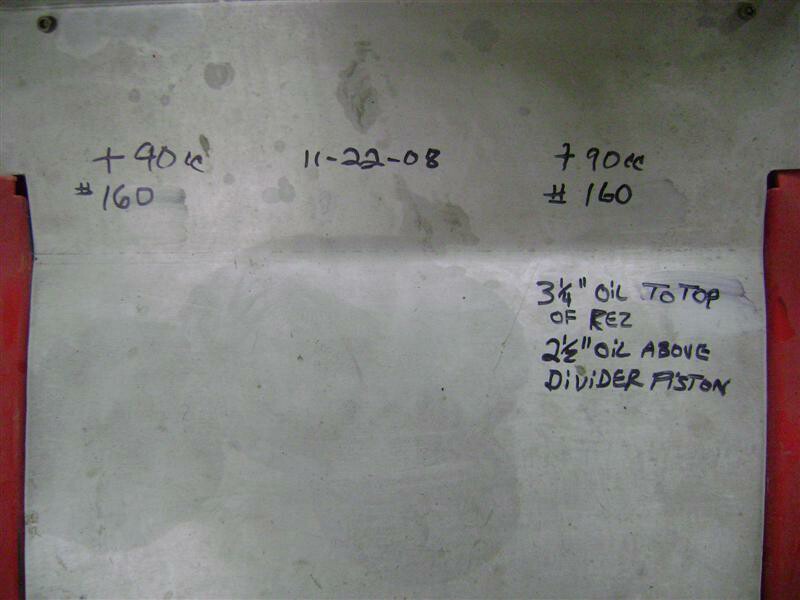 + 90cc
# 160
11-22-08
+ 90cc
# 160
3 1/4" OiL TO TOP
OF REZ
2 1/2" OiL ABOVE
DiViDER PiSTON